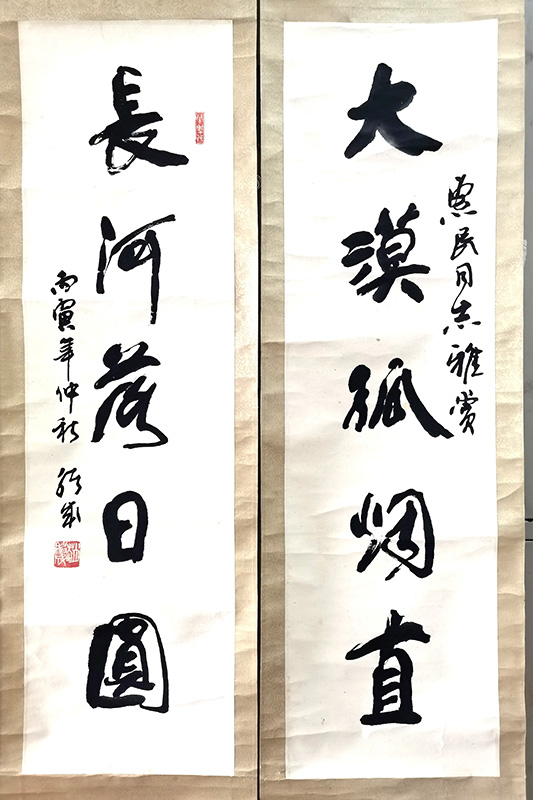 惠民同志雅赏
大漠孤烟直
長河落日圓
丙寅年仲秋